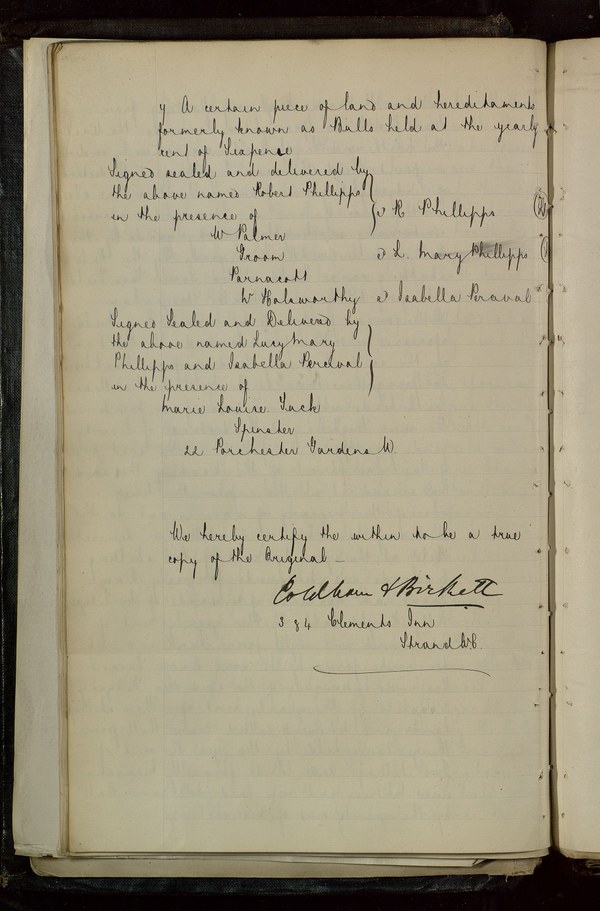 y A certain piece of land and hereditaments
formerly known as Bulls held at the yearly
rent of Sixpence
Signed sealed and delivered by
the above named Robert Phillipps
in the presence of
R Phillipps
W Palmer
Groom
L. Mary Phillipps
Parnacott
W Holsworthy
Isabella Perceval
Signed Sealed and Delivered by
the above named Lucy Mary
Phillipps and Isabella Percival
in the presence of
Marie Louise Tack
Spinster
22 Porchester Gardens W.
We hereby certify the within to be a true
copy of the Original
Coldham & Birkett
3 & 4 Clements Inn
Strand W.C.